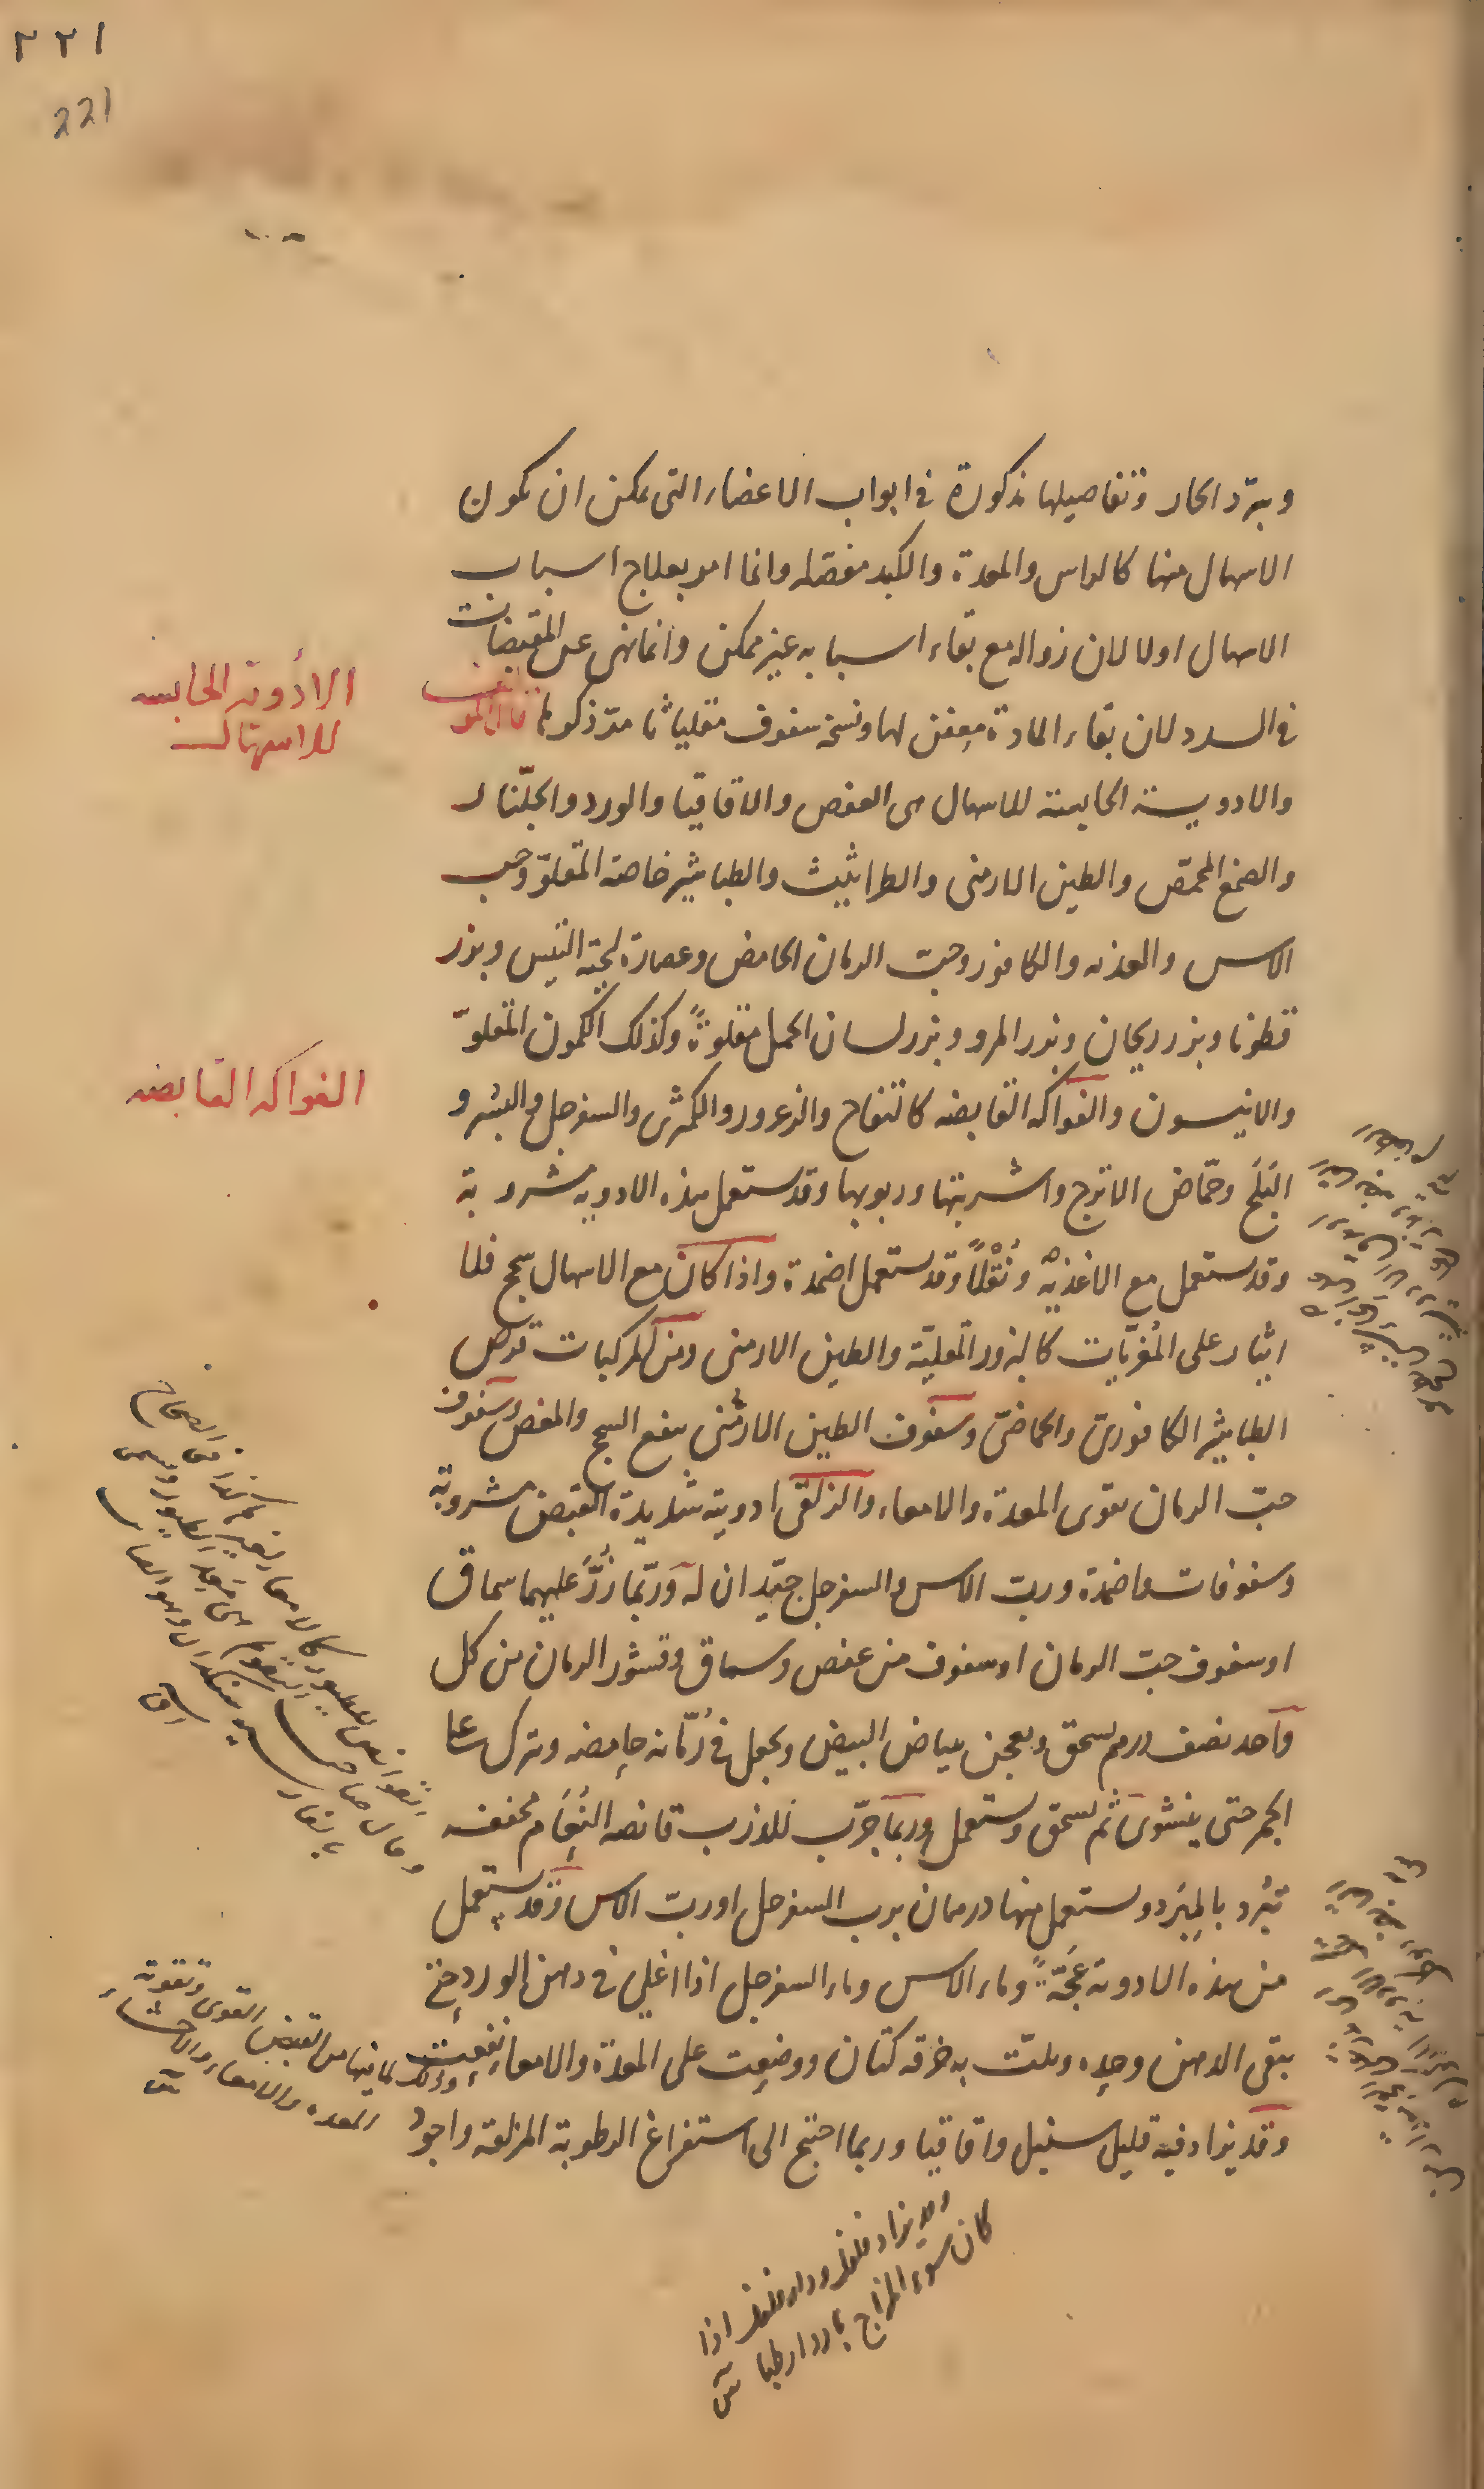 ٢٢١
221
ويبرّد الحار وتفاصيلها مذكورة في ابواب الاعضاء التي يمكن ان يكون
الاسهال منها كالراس والمعدة والكبد مفصله وانما امر بعلاج اسباب
الاسهال اولا لان زواله مع بقاء اسبابه غير ممكن وانما نهى عن المقبضات
في السدد لان بقاء المادة معفن لها ونسخة سفوف مقلياثا مرّ ذكرها قال المؤلف
الأدوية الحابسه
للاسهال
والادويــة الحابسة للاسهال هى العفص والاقاقيا والورد والجلّنار
والصمغ المحمّص والطين الارمنى والطراثيث والطباشير خاصة المقلوّ وحب
الاس والعذبه والكافور وحبّ الرمان الحامض وعصارة لحية التيس وبزر
قطونا وبزر ريحان وبزر المرو وبزر لسان الحمل مقلوّةً وكذلك الكمون المقلوّ
الفواكه القابضه
والانيسون والفواكه القابضه كالتفاح والزعرور والكمثرى والسفرجل والبسر و
البلَح وحمّاض الاترج واشربتها وربوبها وقد يستعمل هذه الادويه مشروبة
وقد يستعمل مع الاغذيه ونُقْلاً وقد يستعمل اضمدة واذا كان مع الاسهال سحج فلا
ايثار على المُغرّيات كالبزور المقليّة والطين الارمنى ومن المركبات قرص
الطباشير الكافورىّ والحماضىّ وسفوف الطين الارمنى ينفع السحج والمغص وسفوف
حبّ الرمان يقوى المعدة والامعاء والزلقى ادوية شديدة القبض مشروبة
وسفوفات واضمدة وربّ الاس والسفرجل جيّدان له وربّما ذُرَّ عليهما سماق
او سفوف حبّ الرمان او سفوف من عفص وسماق وقشور الرمان من كل
واحد نصف درهم يسحق ويعجن ببياض البيض ويجعل في رُمّانه حامضه ويترك على
الجمر حتى ينشوى ثم يسحق ويستعمل وربما جرّب للذرب قانصه النَعَام مجففه
تبرُد بالمِبرَد ويستعمل منها درهمان برب السفرجل او ربّ الاس وقد يستعمل
من هذه الادوية عُجّةً وماء الاس وماء السفرجل اذا اغلى في دهن الورد حتى
يبقى الدهن وحده وبلّت به خرقه كتّان ووضعت على المعدة والامعاء نفعت
وذلك لما فيها من القبض القوى وتقوية
المعده والامعاء والاحشاء
وقد يزاد فيه قليل سنبل واقاقيا وربما احتيج الى استفراغ الرطوبة المزلقة واجود
وقد يزاد فلفل ودار فلفل اذا
كان سوء المزاج باردا رطبا